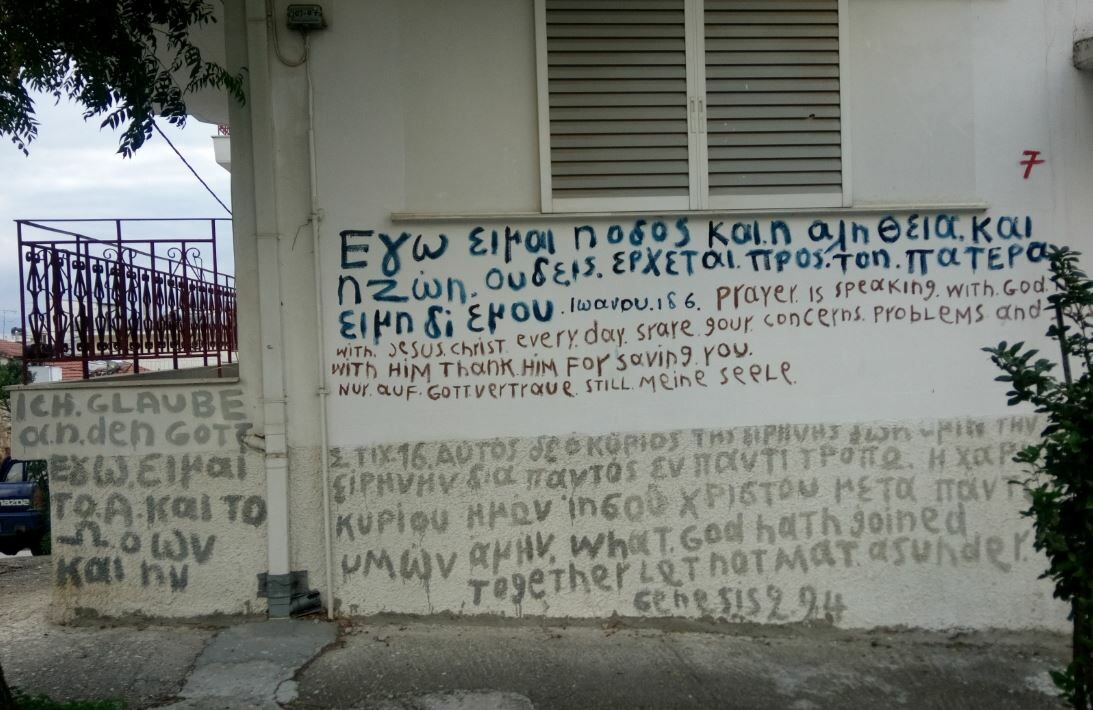 7
Εγω ειμαι η οδος και.η αληθεια.και
η ζωη. ουδεις. ερχεται.προς.τοη.πατερα
ειμη δι εμου. Ιωανου.ιδ 6. Prayer. is speaking. with. God.
with. Jesus. christ. every. day. srare. gour. concerns. problems and
with HIM Thank.HIM For saving. you.
Nur. auf. Gott.vertraue. still. meine seele.
ICH. GLAUBE
an. den GOTT
Εγω. ειμαι
το. Α. και το
Ω. ο ων
και ην
Στιχ. 16. Αυτος δε ο κυριος της ειρηνης δωη υμιν την
ειρηνην δια παντος εν παντι τροπω. Η χαρ
κυριου ημών ιησού χριστου μετα παντ
υμών αμην. what. God hath goined
Together Let not mat. asunder.
Genesis 2 24
MAZDA